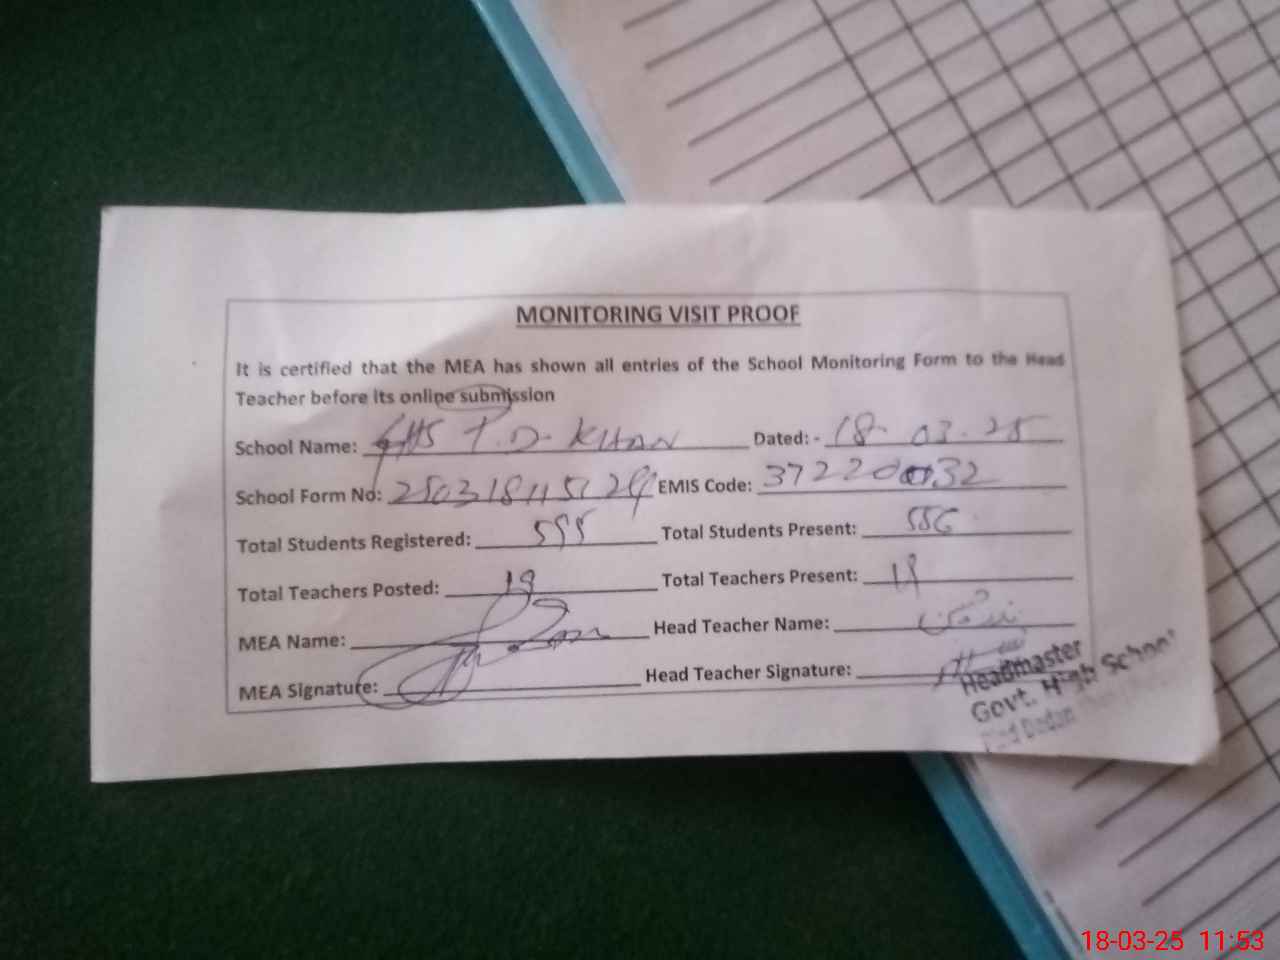 MONITORING VISIT PROOF
It is certified that the MEA has shown all entries of the School Monitoring Form to the Head
Teacher before its online submission
School Name: GHS P.D. KHAN Dated: - 18-03-25
School Form No: EMIS Code: 37220032
Total Students Registered: Total Students Present: 556
Total Teachers Posted: 19 Total Teachers Present:
MEA Name: Head Teacher Name:
MEA Signature: Head Teacher Signature:
Headmaster
Govt. High School
Dadan
18-03-25 11:53